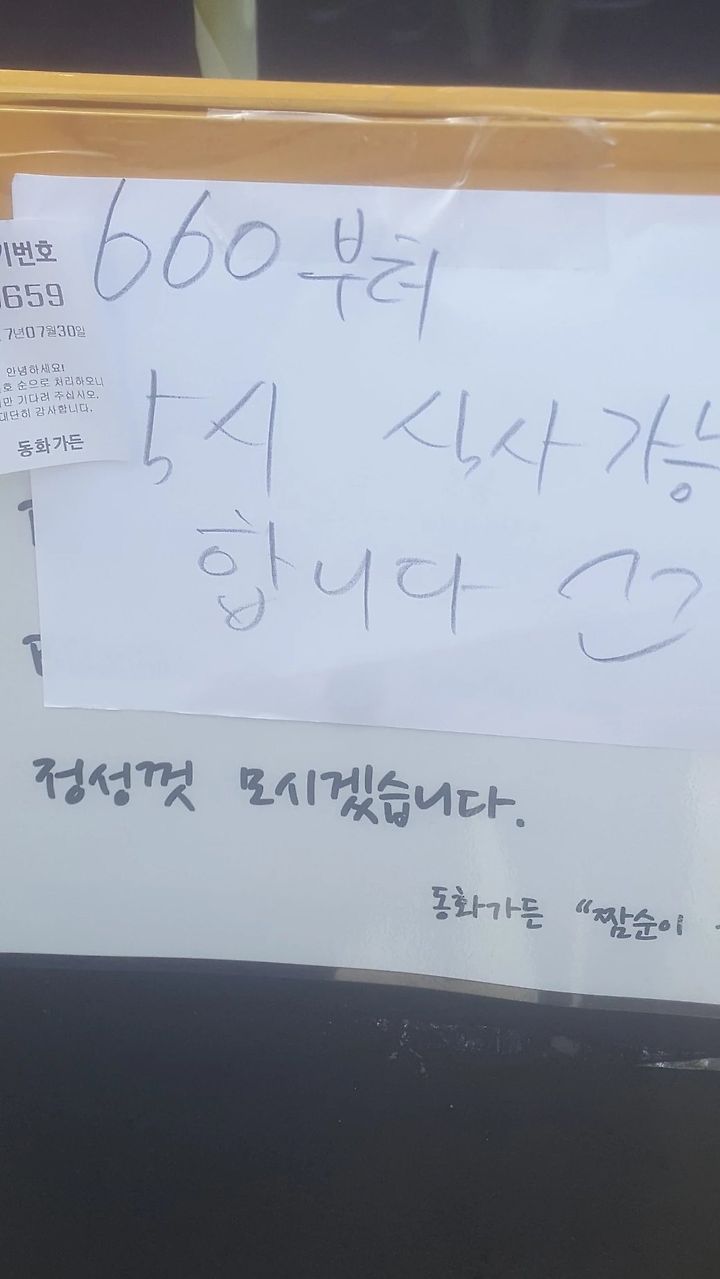 660부터
5시 식사가능
합니다
기번호
0659
7년07월30일
안녕하세요!
호 순으로 처리하오니
만 기다려 주십시오.
대단히 감사합니다.
동화가든
정성껏 모시겠습니다.
동화가든 "짬순이